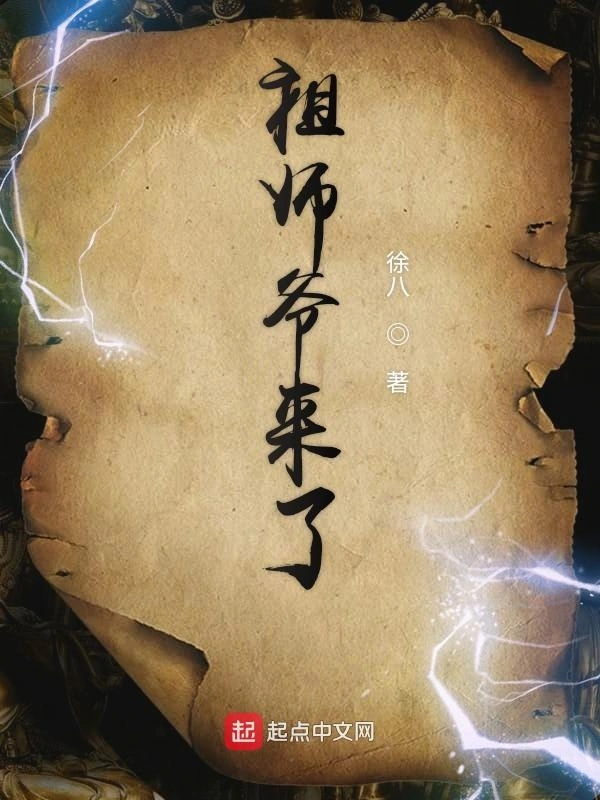 祖师爷来了
徐八 ◎ 著
起 起点中文网